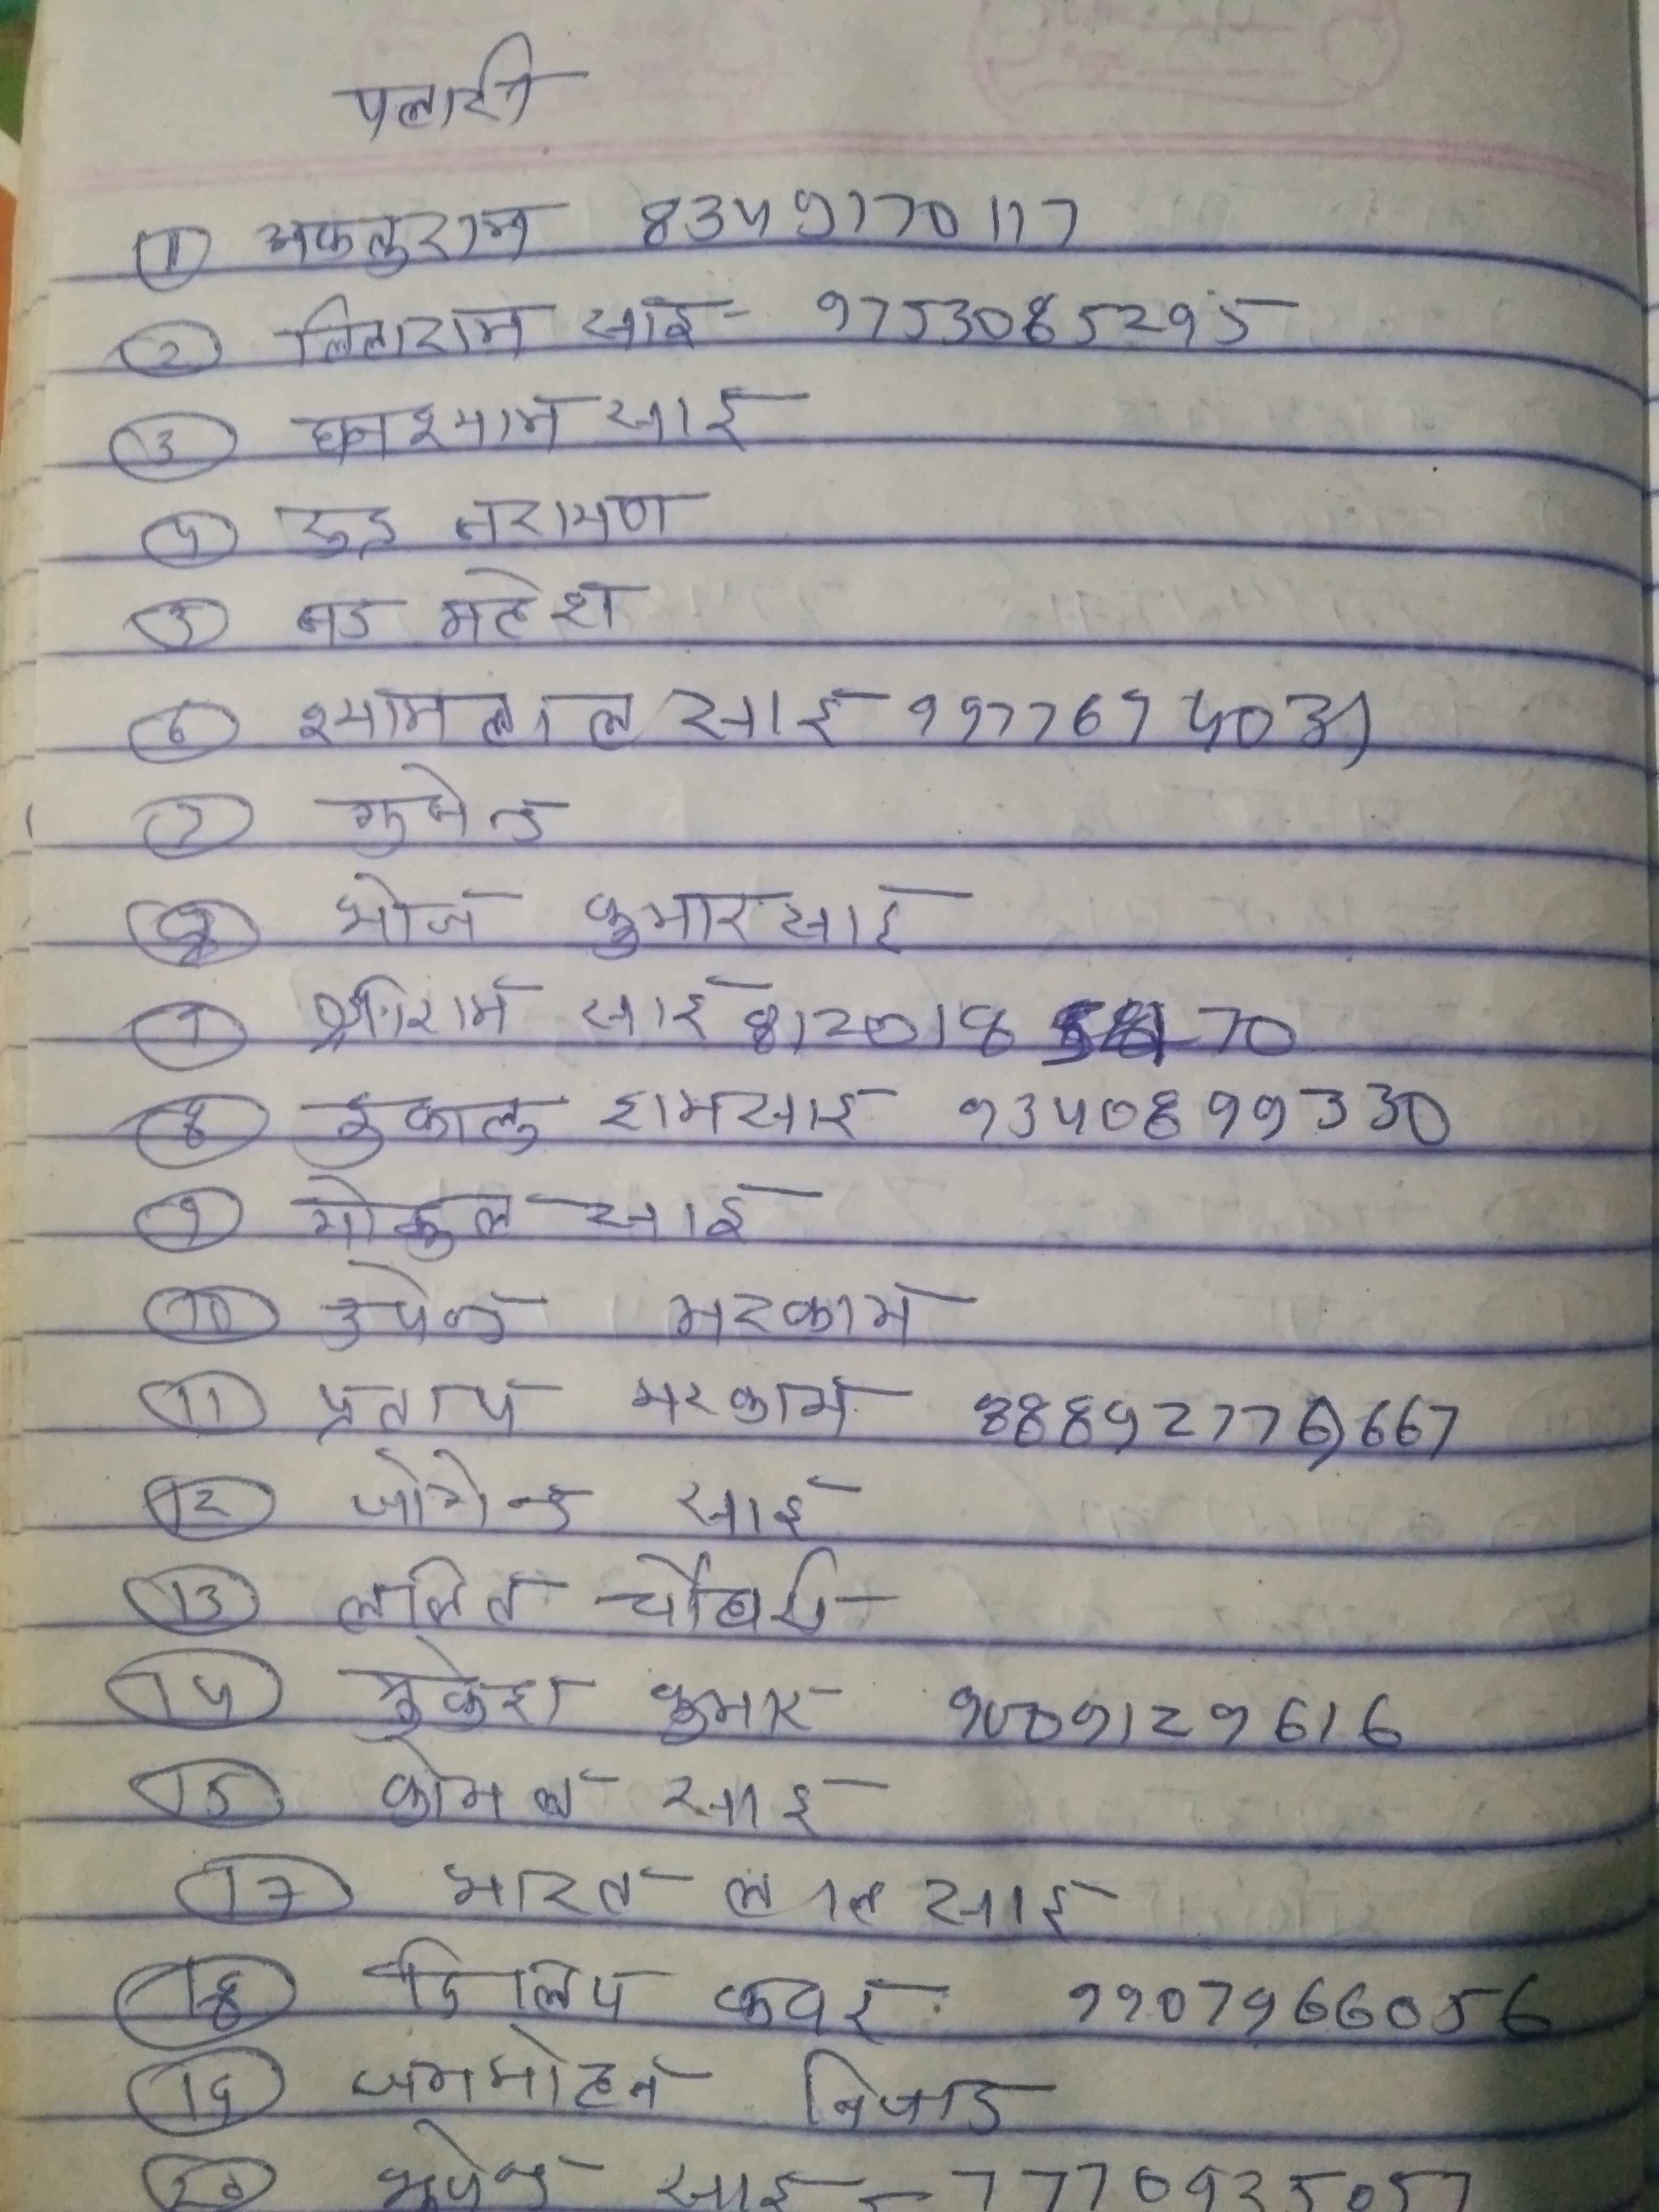 पलारी
① अकलुराम 8349170117
② लिलाराम साई - 9753085295
③ घनश्याम साई
④ नरायण
⑤ महेश
⑥ श्यामलाल साई
⑦
⑧ भोज कुमार साई
⑨ श्रीराम साई 812018 70
⑧ रामसाई 9340899330
⑨ गोकुल साई
⑩ उपेन्द्र मरकाम
⑪ प्रताप मरकाम
⑫ जोगेन्द्र साई
⑬ ललित चौधरी
⑭ मुकेश कुमार 9009129616
⑮ कोमल साई
⑰ भारत लाल साई
⑱ दिलिप कवर 9907966056
⑲ जगमोहन
⑳ भुपेन्द्र साई - 7770935057